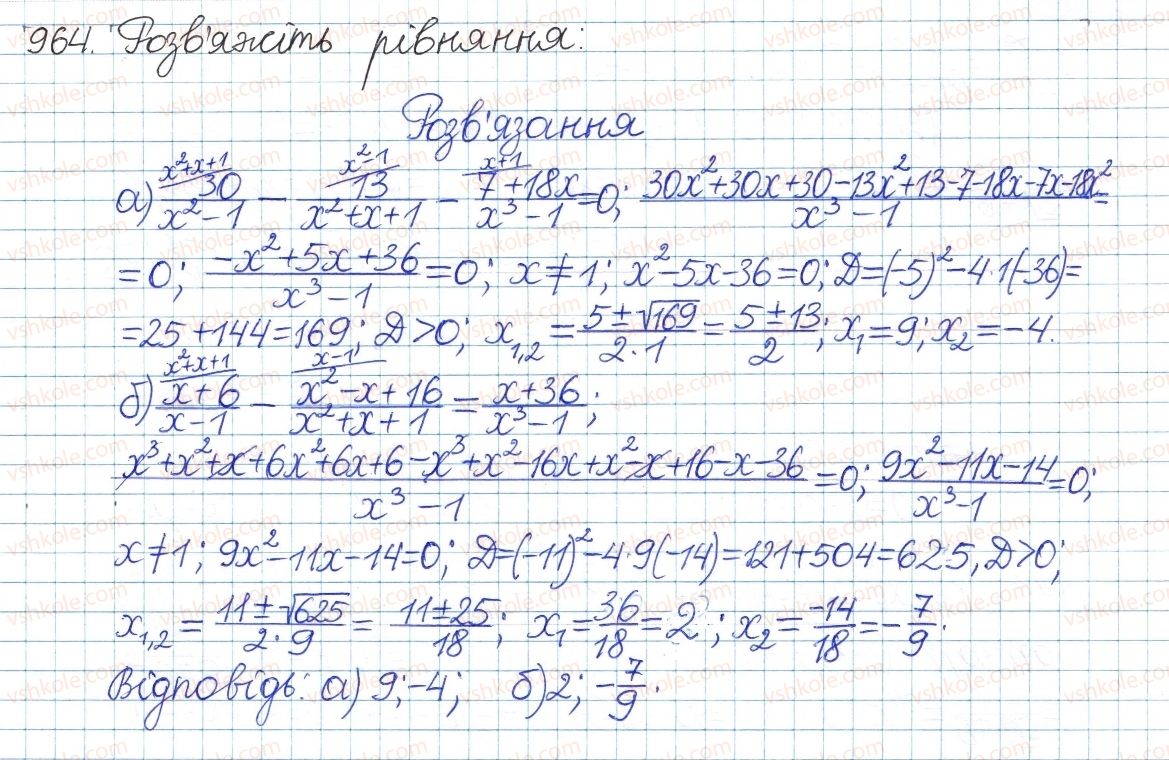 964. Розв'яжіть рівняння:
Розв'язання
x²+x+1 x²-1 x+1
а) 30/(x²-1) - 13/(x²+x+1) - (7+18x)/(x³-1) = 0; (30x²+30x+30-13x²+13-7-18x-7x-18x²)/(x³-1) =
= 0; (-x²+5x+36)/(x³-1) = 0; x≠1; x²-5x-36=0; Д=(-5)²-4·1(-36)=
=25+144=169; Д>0; x₁,₂ = (5±√169)/(2·1) = (5±13)/2; x₁=9; x₂=-4.
x²+x+1 x-1
б) (x+6)/(x-1) - (x²-x+16)/(x²+x+1) = (x+36)/(x³-1);
(x³+x²+x+6x²+6x+6-x³+x²-16x+x²-x+16-x-36)/(x³-1) = 0; (9x²-11x-14)/(x³-1) = 0;
x≠1; 9x²-11x-14=0; Д=(-11)²-4·9(-14)=121+504=625, Д>0;
x₁,₂ = (11±√625)/(2·9) = (11±25)/18; x₁ = 36/18 = 2; x₂ = -14/18 = -7/9.
Відповідь: а) 9; -4; б) 2; -7/9.